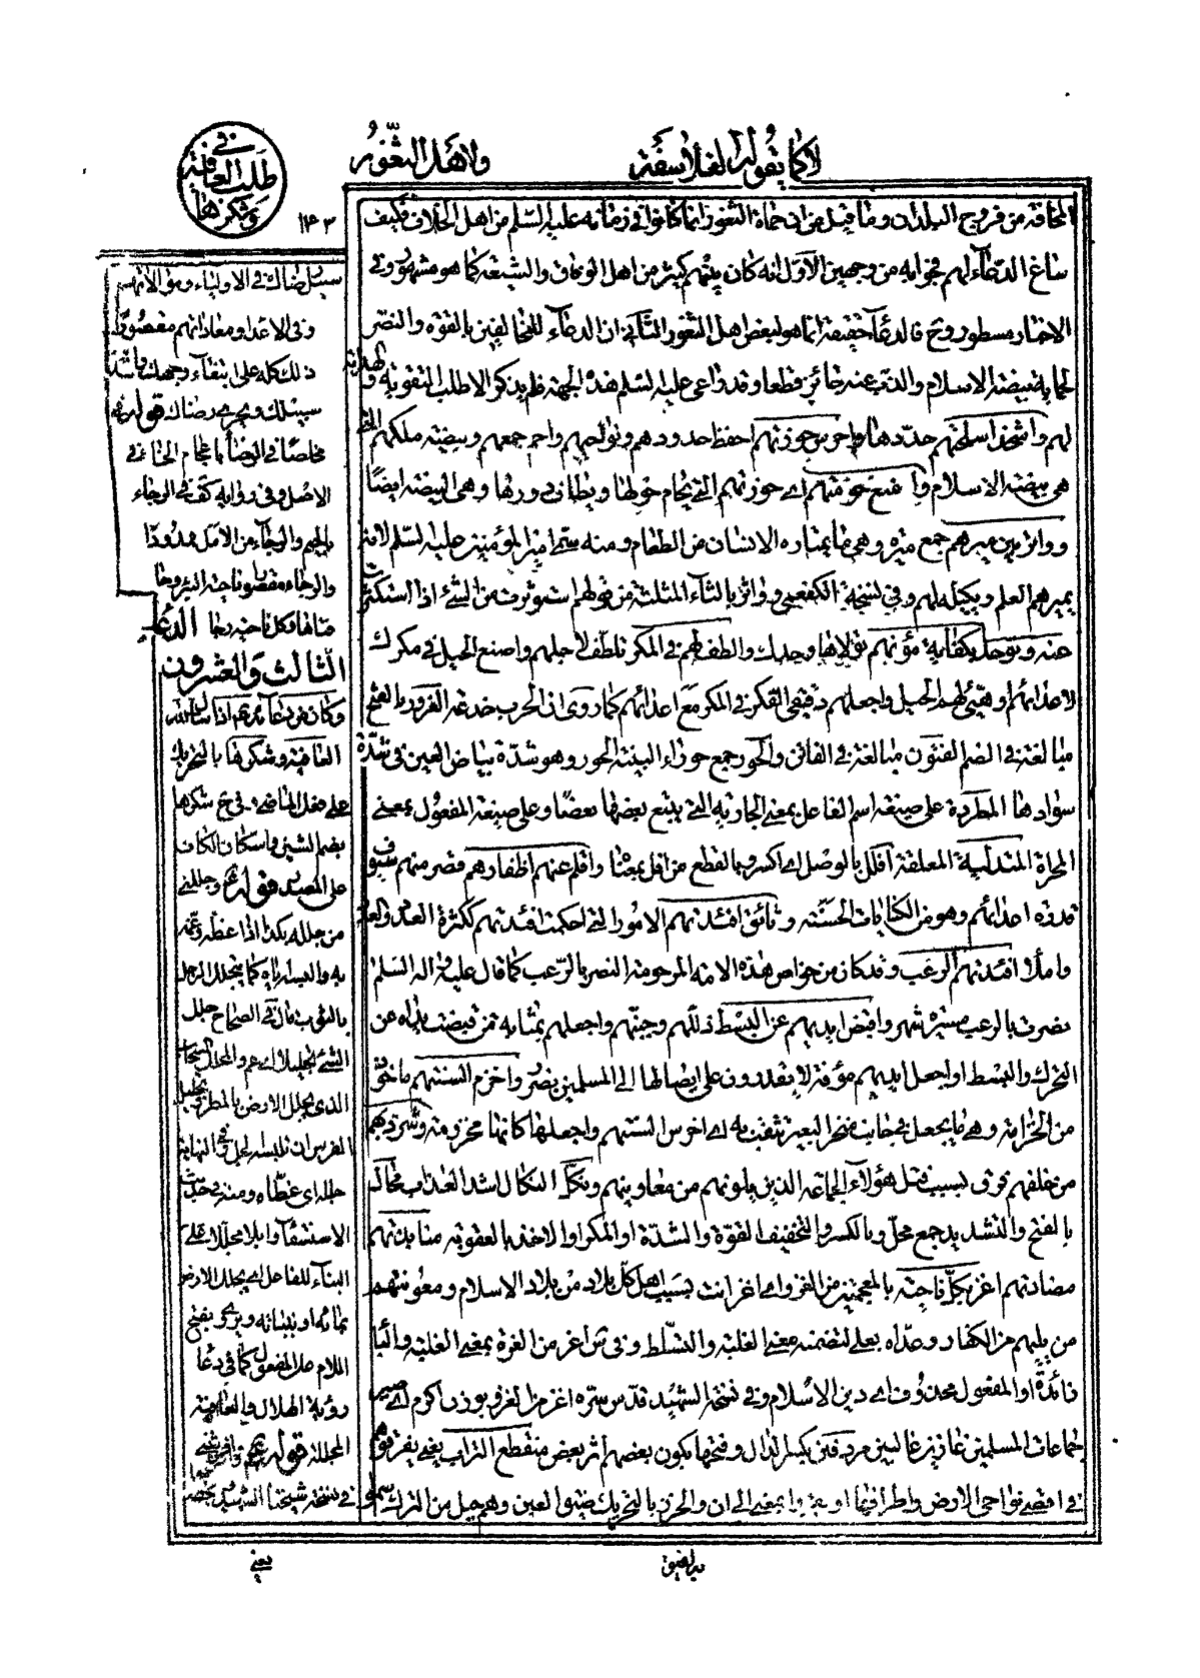 لا كما يقوله الفلاسفة
ولاهل الثغور
في
طلب العافية
وشكرها
١٤٣
المخافة من فروج البلدان وما قيل من ان حماة الثغور انما كانوا في زمانه عليه السلم من اهل الخلاف فكيف
ساغ الدعاء لهم فجوابه من وجهين الاول انه كان بينهم كثير من اهل الوفاق والشيعة كما هو مشهور وفي
الاخبار مسطور وح فالدعاء حقيقة انما هو لبعض اهل الثغور الثاني ان الدعاء للمخالفين بالقوة والنصر
لحماية بيضة الاسلام والذب عنه جائز قطعا وقد واعى عليه السلم هذه الجهة فلم يذكر الا طلب التقوية
لهم واشحذ اسلحتهم حددها واحرس حوزتهم احفظ حدودهم ونواحيهم واجمع جمعهم وبيضة ملكهم
هي بيضة الاسلام وامنع حومتهم اي حوزتهم التي يحام حولها ويطاف بدورها وهي البيضة ايضا
وواتر بين ميرهم جمع ميرة وهي ما يمتاره الانسان من الطعام ومنه سمي امير المؤمنين عليه السلم لانه
يميرهم العلم ويكيله لهم وفي نسخة الكفعمي وواثر بالثاء المثلثة من قولهم استوثرت من الشئ اذا استكثرت
منه وتوحد بكفاية مؤنهم تولاها وحدك والطف لهم في المكر تلطف لاجلهم واصنع الحيل في مكرك
لاعدائهم وهيئ لهم الحيل واجعلهم دقيقي الفكر في المكر مع اعدائهم كما روى ان الحرب خدعة الغرور بالفتح
مبالغة في الضم الفتون مبالغة في الفاتن والحور جمع حوراء البينة الحور وهو شدة بياض العين في شدة
سوادها المطردة على صيغة اسم الفاعل بمعنى الجارية التي يتبع بعضها بعضا وعلى صيغة المفعول بمعنى
المجراة المتدلية المعلقة افلل بالوصل اي اكسر وبالقطع من افل بمعناه واقلم عنهم اظفارهم قصر منهم
قدرة اعدائهم وهو من الكنايات الحسنة وثائق افئدتهم الامور التي احكمت افئدتهم ككثرة العدد والعدة
واملأ افئدتهم الرعب وقد كان من خواص هذه الامة المرحومة النصر بالرعب كما قال عليه واله السلم
نصرت بالرعب مسيرة شهر واقبض ايديهم عن البسط ذللهم وجبنهم واجعلهم بمثابة من قبضت يداه عن
التحرك والبسط او اجعل ايديهم مؤفة لا يقدرون على ايصالها الى المسلمين بضر واخزم السنتهم ماخوذ
من الخزامة وهي ما يجعل في جانب منخر البعير تثقب به اي اخرس السنتهم واجعلها كانها مخزومة وشرد بهم
من خلفهم فرق بسبب قتل هؤلاء الجماعة الذين يلونهم من معاونيهم ونكل النكال اشد العذاب محال
بالفتح والتشديد جمع محل وبالكسر والتخفيف القوة والشدة او المكر او الاخذ بالعقوبة منابذتهم
مضادتهم اغز بكل ناحية بالمعجمتين من الغزو اي اغز انت بسبب اهل كل بلاد من بلاد الاسلام ومعونتهم
من يليهم من الكفار وعداه بعلى لتضمنه معنى الغلبة والتسلط وفي ش اعز من العزة بمعنى الغلبة والباء
زائدة او المفعول محذوف اي دين الاسلام وفي نسخة الشهيد قدس سره اغز من الغزو بوزن اكرم اي صير
جماعات المسلمين غازين غالبين مردفين بكسر الدال وفتحها يكون بعضهم اثر بعض منقطع التراب يعني يفرقوهم
في اقصى نواحي الارض واطرافها او بمعنى الى ان والخزر بالتحريك ضيق العين وهم جيل من الترك سموا
به لضيق
سبيل رضاك في الاولياء
وفي الاعداء ومعاداتهم مقصورا
ذلك كله على ابتغاء وجهك
سبيلك وتحري رضاك قوله
مخلصا في الرضا
الاصل وفي رواية كف في الرجاء
بالجيم والرجاء من الامل ممدودا
والرجاء مقصورا ناحية البئر وحا
فتاها وكل ناحية رجا الدعاء
الثالث والعشرون
وكان من دعائه اذا سال الله
العافية وشكرها بالتحريك
على فعل الماضي في ح شكرها
بضم الشين واسكان الكاف
على المصدر قوله وجللني
من جلله بكذا اذا عظه وعمه
به والبسه اياه كما يتجلل الرجل
بالثوب قال في الصحاح جلل
الشئ تجليلا اي عم والمجلل السحاب
الذي يجلل الارض بالمطر وتجليل
الفرس ان تلبسه الجل في النهاية
جلله اي غطاه ومنه حديث
الاستسقاء وابلا مجللا على
البناء للفاعل اي يجلل الارض
بمائه او بنباته ويروى بفتح
اللام على المفعول كما في دعا
رؤية الهلال والعافية
المجللة قوله
في نسخة شيخنا الشهيد
يعني